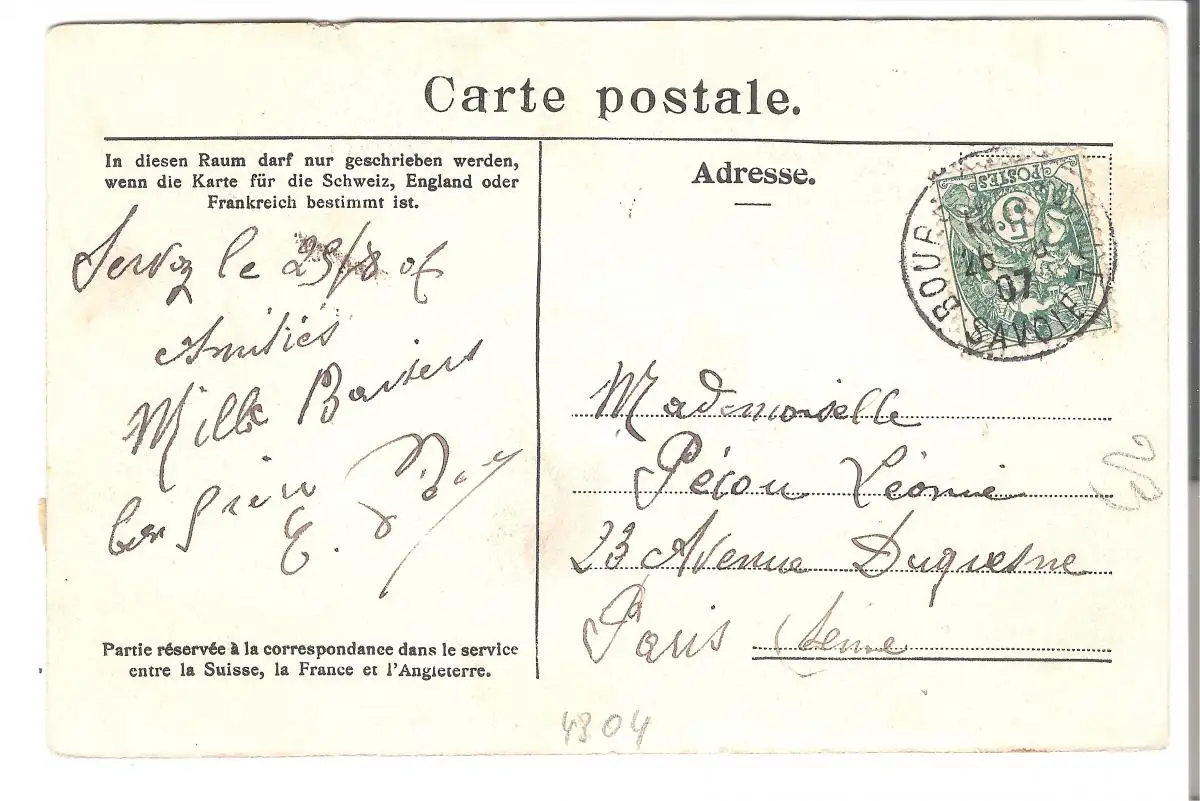 Carte postale.
In diesen Raum darf nur geschrieben werden,
wenn die Karte für die Schweiz, England oder
Frankreich bestimmt ist.
Servoz le 25/8 07
Amitiés
Mille Baisers
E.
Partie réservée à la correspondance dans le service
entre la Suisse, la France et l'Angleterre.
Adresse.
POSTES
5
26
07
SAVOIE
Mademoiselle
Pécou Léonie
23 Avenue Duquesne
Paris Seine
4304